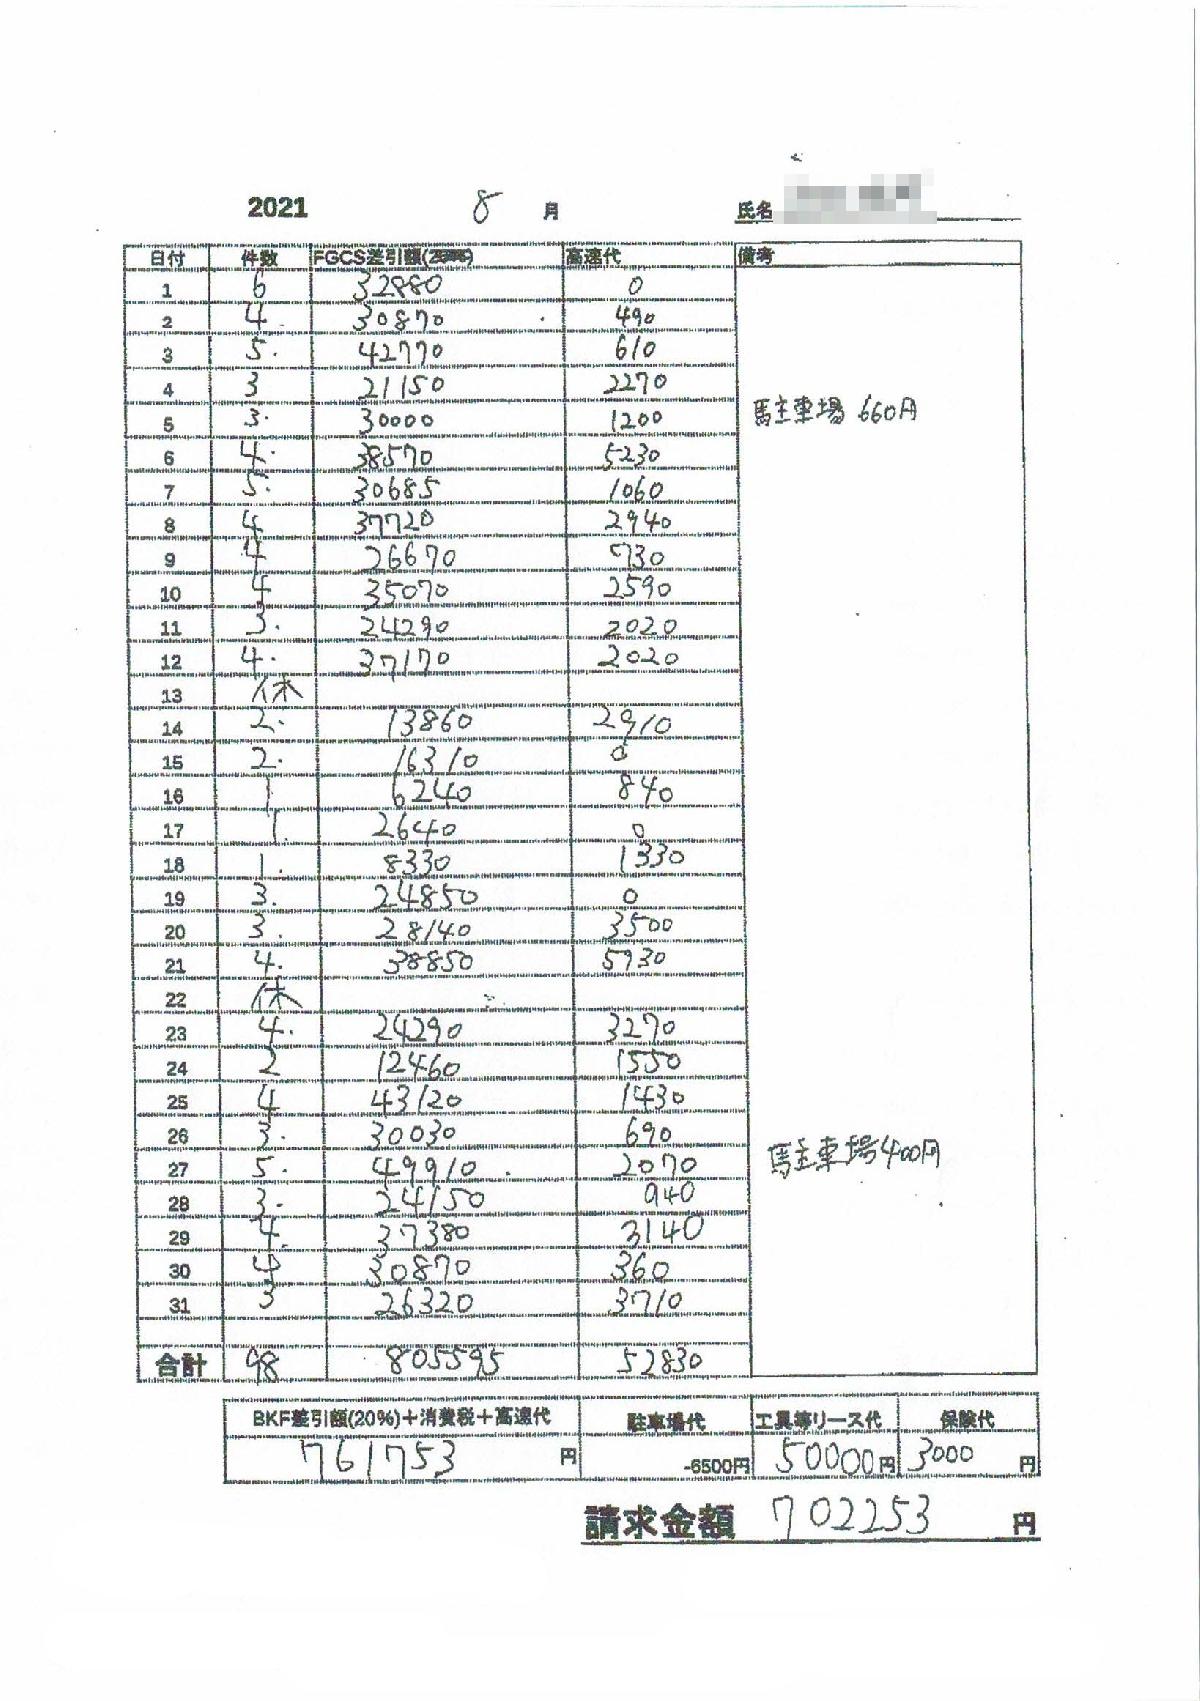 2021 8 月 氏名
日付 件数 FGCS差引額( 高速代 備考
1 6 32880 0
2 4 30870 490
3 5. 42770 610
4 3 21150 2270
5 3. 30000 1200 駐車場 660円
6 4. 38570 5230
7 5. 30685 1060
8 4 37720 2940
9 4 26670 730
10 4 35070 2590
11 3. 24290 2020
12 4. 37170 2020
13 休
14 2. 13860 2910
15 2. 16310 0
16 1 6240 840
17 1. 2640 0
18 1. 8330 1330
19 3. 24850 0
20 3. 28140 3500
21 4. 38850 5930
22 休
23 4. 24290 3270
24 2 12460 1550
25 4 43120 1430
26 3. 30030 690
27 5. 49910 2070 駐車場400円
28 3. 24150 940
29 4. 37380 3140
30 4 30870 360
31 3 26320 3710
合計 98 805595 52830
BKF差引額(20%)+消費税+高速代 駐車場代 工具等リース代 保険代
761753 円 -6500円 50000円 3000 円
請求金額 702253 円